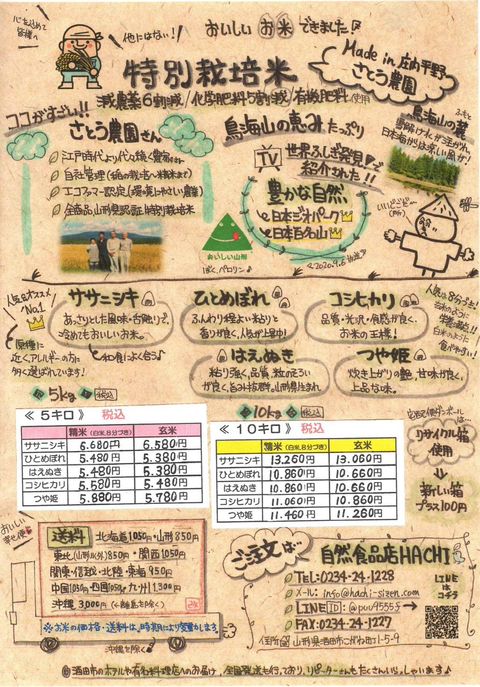 心を込めて
皆様へ
他にはない!
おいしいお米できました!
特別栽培米
減農薬6割減/化学肥料5割減/有機肥料使用
Made in 庄内平野
さとう農園
ココがすごい!!
さとう農園さん
江戸時代より代々続く農家
エコファーマー認定(環境にやさしい農業)
全商品、山形県認証特別栽培米
鳥海山の恵みたっぷり
TV
世界ふしぎ発見!で
紹介された!!
豊かな自然
日本ジオパーク
日本百名山
<2020.9.6放送>
おいしい山形
ぼく、ペロリン♪
鳥海山の麓
人気品オススメ
No.1
ササニシキ
あっさりとした風味・舌触りで、
冷めてもおいしいお米。
和食によく合う♪
近くアレルギーの方に
多く選ばれています!
ひとめぼれ
ふんわり程よい粘りと
香りが良く、人気が上昇中!
コシヒカリ
品質・光沢・食感が良く、
お米の王様!
はえぬき
粘り強く、品質、粒のそろい
が良く、旨み抜群。山形県生まれ
つや姫
炊き上がりの艶、甘味が良く、
上品な味。
人気は8分づき!
白米のように
食べやすい!
5kg 税込
≪5キロ≫ 税込
精米(白米,8分づき) 玄米
ササニシキ 6.680円 6.580円
ひとめぼれ 5.480円 5.380円
はえぬき 5.480円 5.380円
コシヒカリ 5.580円 5.480円
つや姫 5.880円 5.780円
10kg 税込
≪10キロ≫ 税込
精米(白米,8分づき) 玄米
ササニシキ 13.260円 13.060円
ひとめぼれ 10.860円 10.660円
はえぬき 10.860円 10.660円
コシヒカリ 11.060円 10.860円
つや姫 11.460円 11.260円
宅配便ダンボールは…
リサイクル箱
使用
新しい箱
プラス100円
おいしい
幸せ便
送料
北海道1050円・山形850円
東北(山形以外)850円・関西1050円
関東・信越・北陸・東海950円
中国1050円・四国1050円・九州1,300円
沖縄3,000円(〜離島を除く)
※お米の価格・送料は、時期により変動がします
沖縄を除く
ご注文は…
自然食品店HACHI
TEL:0234-24-1228
メール: info@hachi-sizen.com
LINEID: @puu9555f
FAX:0234-24-1227
住所 山形県酒田市こがね町1-5-9
LINE
は
コチラ
酒田市のホテルや有名料理店へのお届け、全国発送も行っており、リピーターさんもたくさんいらっしゃいます♪